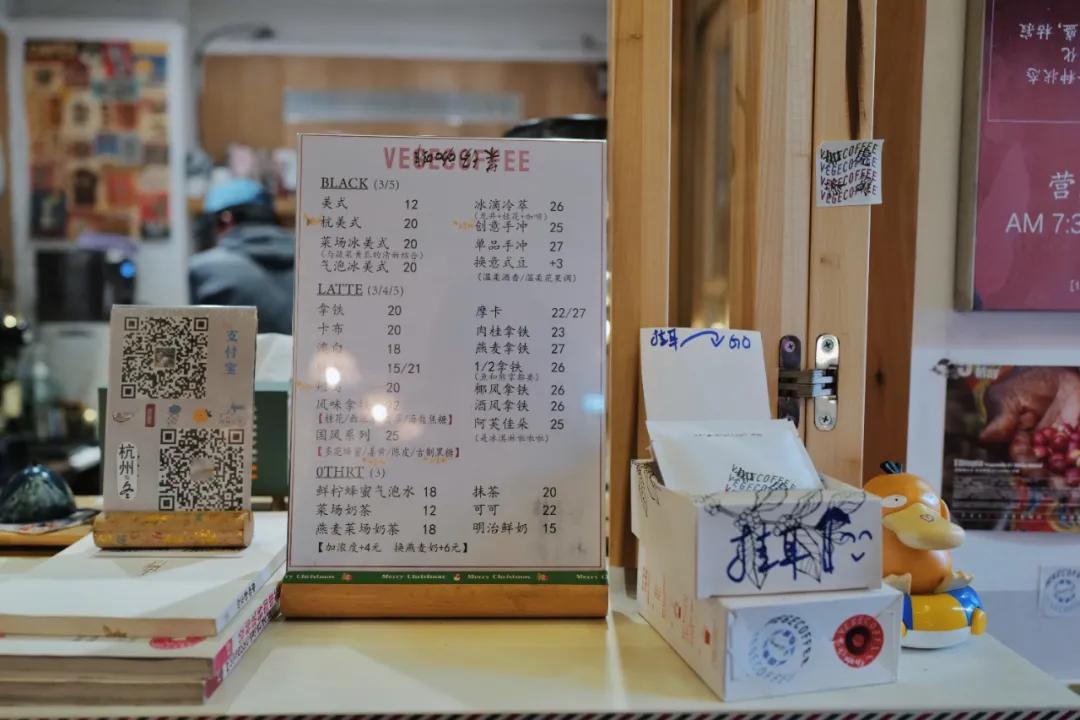 VEGECOFFEE
BLACK (3/5)
美式 12
杭美式 20
菜场冰美式 20
气泡冰美式 20
冰滴冷萃 26
(龙井+桂花+咖啡)
创意手冲 25
单品手冲 27
换意式豆 +3
(温柔酒香/温柔花果调)
LATTE (3/4/5)
拿铁 20
卡布 20
18
15/21
20
风味拿
国风系列 25
摩卡 22/27
肉桂拿铁 23
燕麦拿铁 27
1/2拿铁 26
椰风拿铁 26
酒风拿铁 26
阿芙佳朵 25
(是冰淇淋啦啦啦)
OTHRT (3)
鲜柠蜂蜜气泡水 18
菜场奶茶 12
燕麦菜场奶茶 18
抹茶 20
可可 22
明治鲜奶 15
【加浓度+4元 换燕麦奶+6元】
Merry Christmas Merry Christmas
支付宝
杭州
挂耳 GO
VEGECOFFEE
挂耳
VEGECOFFEE
VEGECOFFEE
VEGECOFFEE
VEGECOFFEE
一种状态
营
AM 7:3